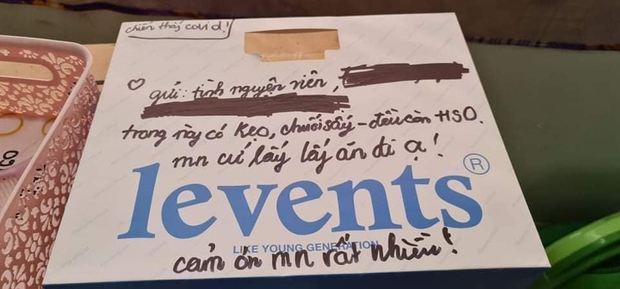 chiến thắng covid!
♡ gửi: tình nguyện viên,
trong này có kẹo, chuối sấy - đều còn HSD.
mn cứ lấy lấy ăn đi ạ!
levents®
LIKE YOUNG GENERATION
cảm ơn mn rất nhiều!